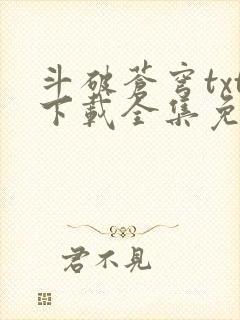 斗破蒼穹txt
下載全集免
君不見